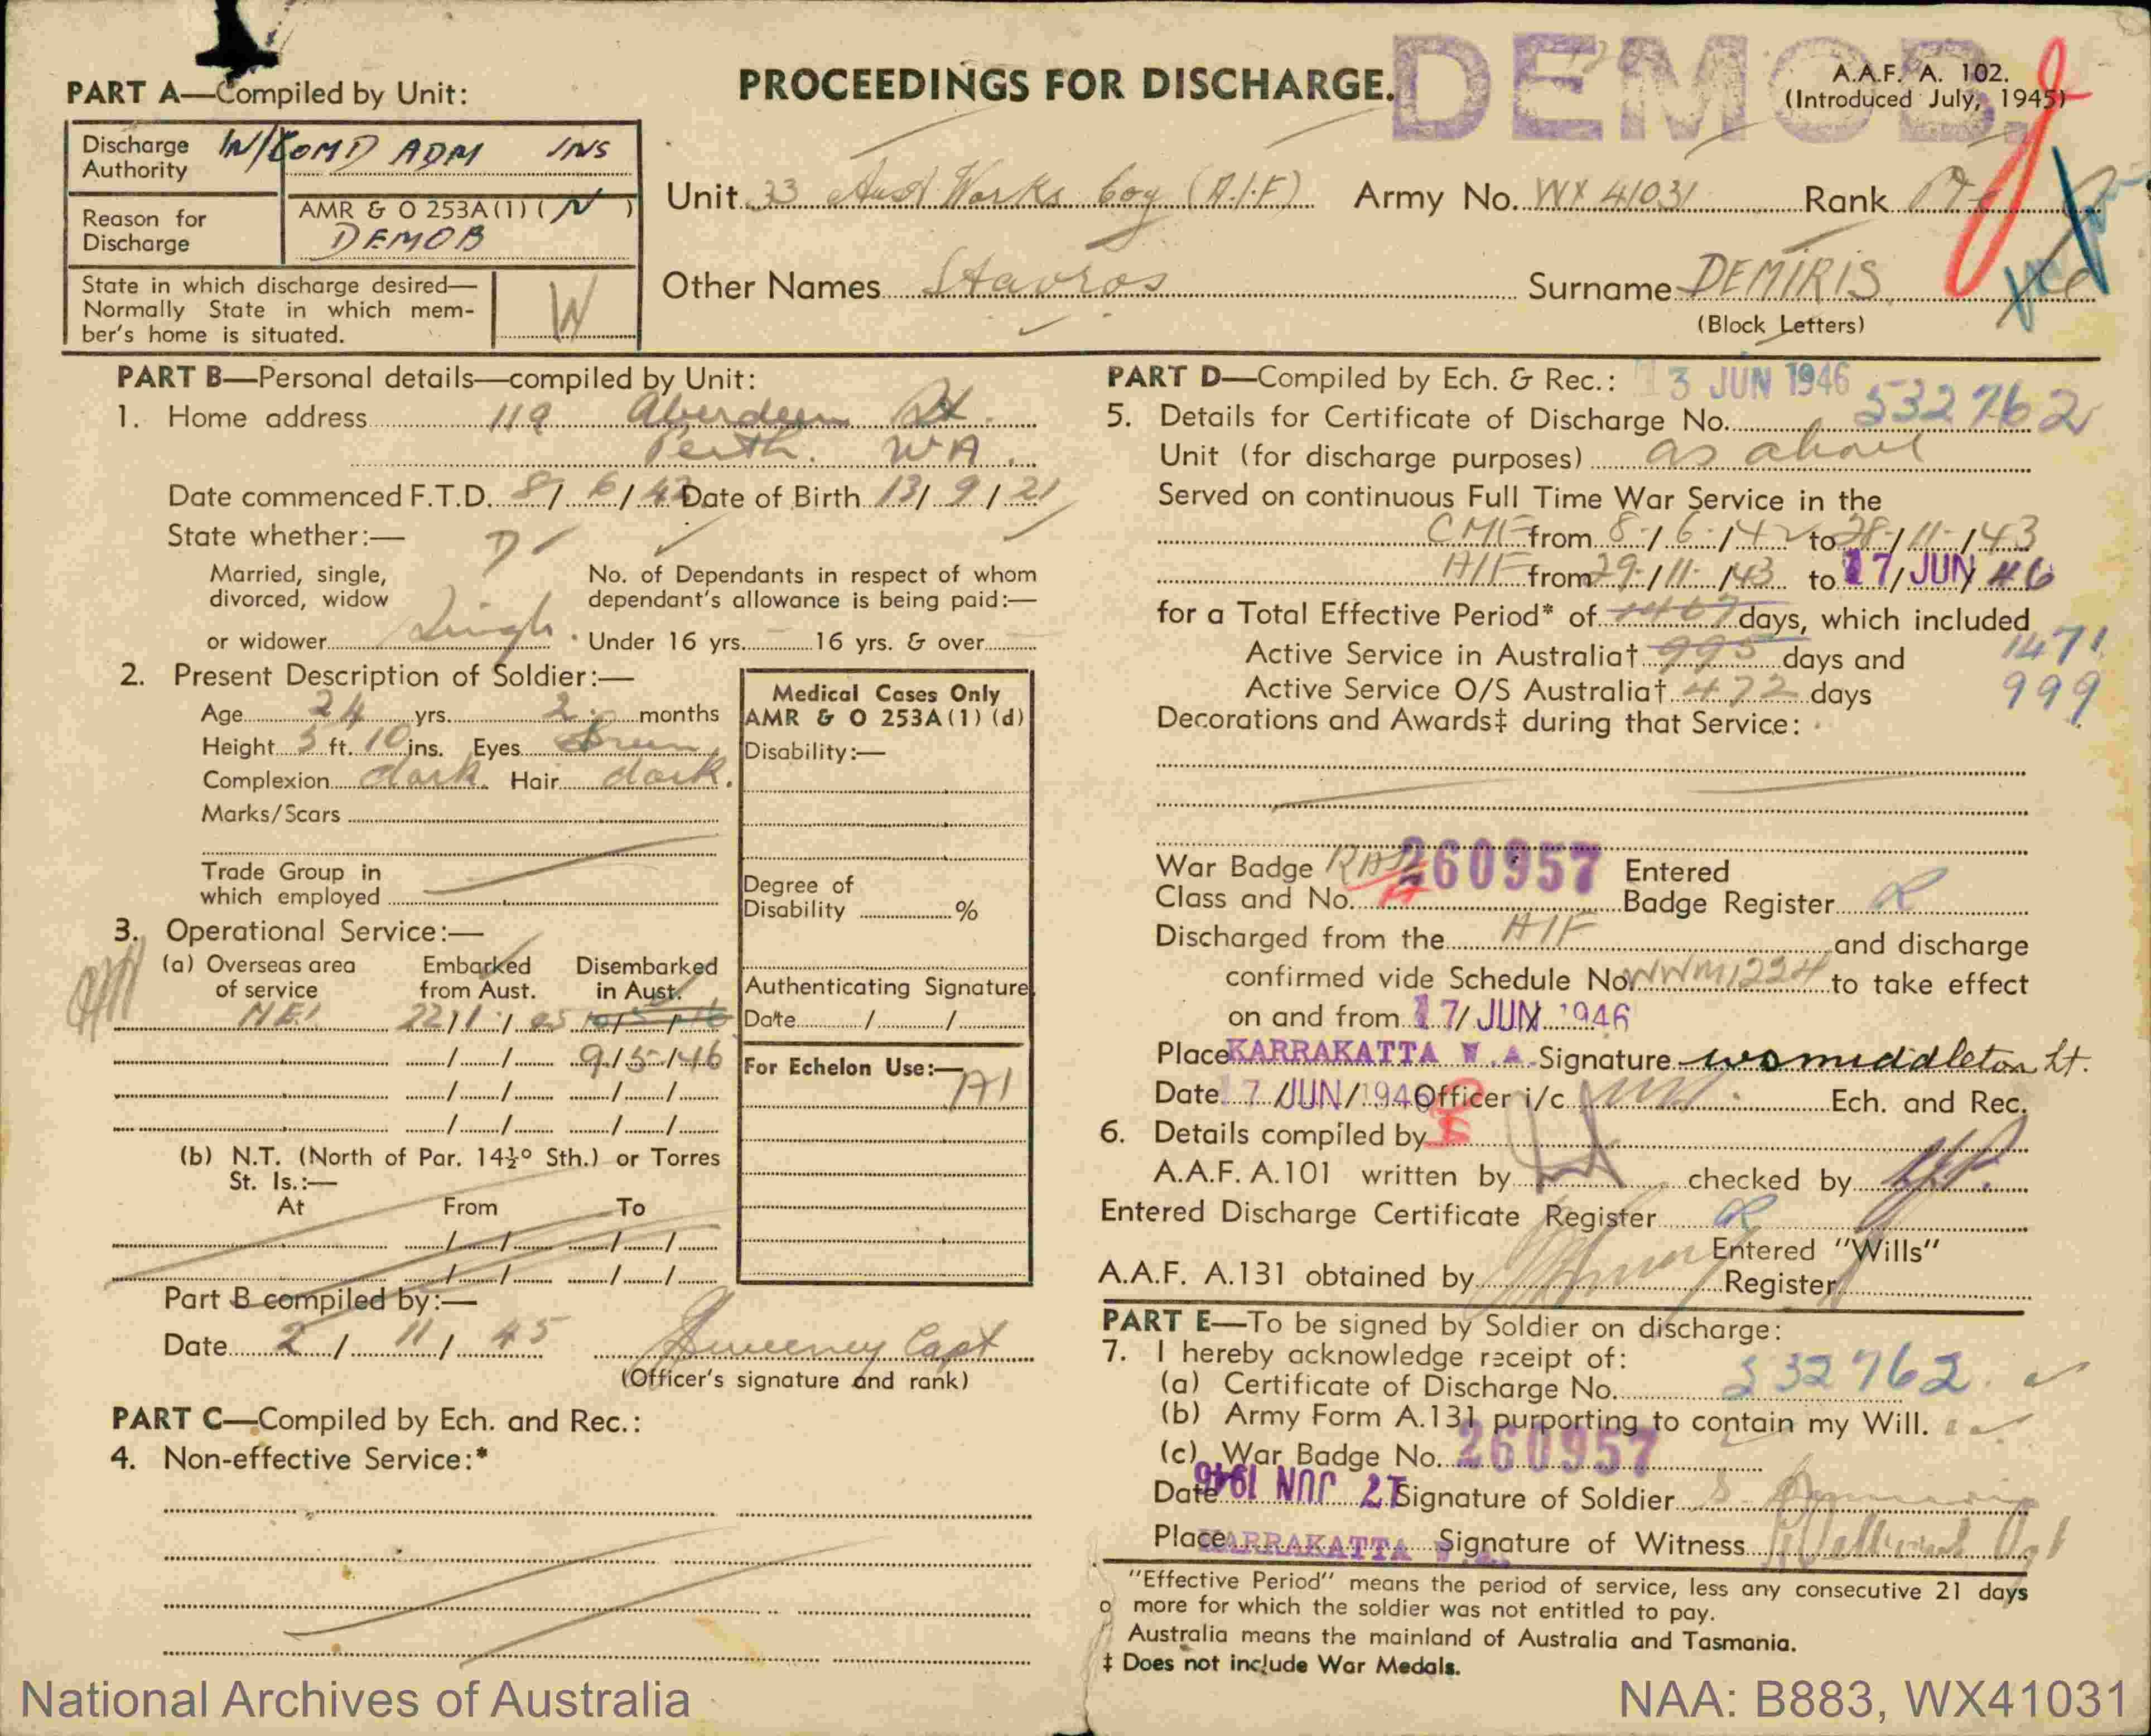 PART A—Compiled by Unit:
PROCEEDINGS FOR DISCHARGE.
DEMOB.
A.A.F. A. 102.
(Introduced July, 1945)
Discharge Authority W/COMD ADM INS
Reason for Discharge AMR & O 253A(1) ( N )
DEMOB
State in which discharge desired—
Normally State in which mem-
ber's home is situated. W
Unit 33 Aust Works Coy (A.I.F) Army No. WX 41031 Rank Pte
Other Names Stavros Surname DEMIRIS
(Block Letters)
PART B—Personal details—compiled by Unit:
1. Home address 119 Aberdeen St.
Perth. WA.
Date commenced F.T.D. 8/ 6/ 42 Date of Birth 13/ 9 / 21
State whether:—
Married, single,
divorced, widow
or widower Single.
No. of Dependants in respect of whom
dependant's allowance is being paid:—
Under 16 yrs. — 16 yrs. & over —
2. Present Description of Soldier:—
Age 24 yrs. 2 months
Height 5 ft. 10 ins. Eyes
Complexion dark Hair dark.
Marks/Scars
Trade Group in
which employed
3. Operational Service:—
(a) Overseas area
of service
Embarked
from Aust.
Disembarked
in Aust.
NEI 22/1/45 10/5/46
/ / 9/5/46
/ / / /
/ / / /
(b) N.T. (North of Par. 14½° Sth.) or Torres
St. Is.:—
At From To
/ / / /
/ / / /
Part B compiled by:—
Date 2 / 11 / 45 Sweeney Capt
(Officer's signature and rank)
Medical Cases Only
AMR & O 253A(1) (d)
Disability:—
Degree of
Disability %
Authenticating Signature
Date / /
For Echelon Use:—
A1
PART C—Compiled by Ech. and Rec.:
4. Non-effective Service:*
PART D—Compiled by Ech. & Rec.: 13 JUN 1946
5. Details for Certificate of Discharge No. 532762
Unit (for discharge purposes) as above
Served on continuous Full Time War Service in the
CMF from 8/6/42 to 28/11/43
AIF from 29/11/43 to 17/JUN 46
for a Total Effective Period* of 1467 days, which included
1471
Active Service in Australia† 995 days and
999
Active Service O/S Australia† 472 days
Decorations and Awards‡ during that Service:
War Badge RAS 260957 Entered
Class and No. A Badge Register R
Discharged from the AIF and discharge
confirmed vide Schedule No. WWM1224 to take effect
on and from 17/JUN 1946
Place KARRAKATTA W.A. Signature wsmiddleton Lt.
Date 17/JUN/1946 Officer i/c Ech. and Rec.
6. Details compiled by
A.A.F. A.101 written by checked by
Entered Discharge Certificate Register R
A.A.F. A.131 obtained by Entered "Wills"
Register
PART E—To be signed by Soldier on discharge:
7. I hereby acknowledge receipt of:
(a) Certificate of Discharge No. 532762.
(b) Army Form A.131 purporting to contain my Will.
(c) War Badge No. 260957
Date 17 JUN 1946 Signature of Soldier
Place KARRAKATTA W.A. Signature of Witness
"Effective Period" means the period of service, less any consecutive 21 days
o more for which the soldier was not entitled to pay.
Australia means the mainland of Australia and Tasmania.
‡ Does not include War Medals.
National Archives of Australia
NAA: B883, WX41031